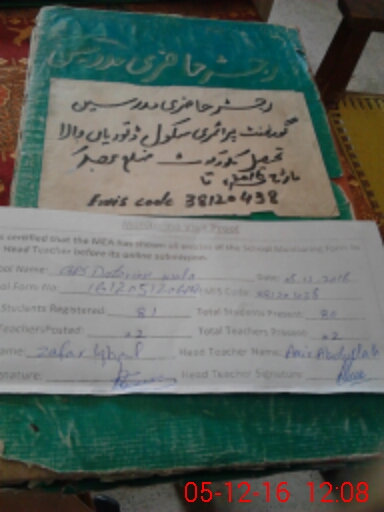 رجسٹر حاضری مدرسین
رجسٹر حاضری مدرسین
گورنمنٹ پرائمری سکول ڈتوریاں والا
تحصیل ضلع بھکر
مارچ 2016ء تا
Emis code 38120438
Monitoring Visit Proof
certified that the MEA has shown all entries of the School Monitoring Form to
Head Teacher before its online submission.
ool Name: GPS wala Date: 05.12.2016
ol Form No: EMIS Code: 38120438
Students Registered: 81 Total Students Present: 80
Teachers Posted: 02 Total Teachers Present: 02
ame: Zafar Iqbal Head Teacher Name: Abdullah
nature: Head Teacher Signature:
05-12-16 12:08